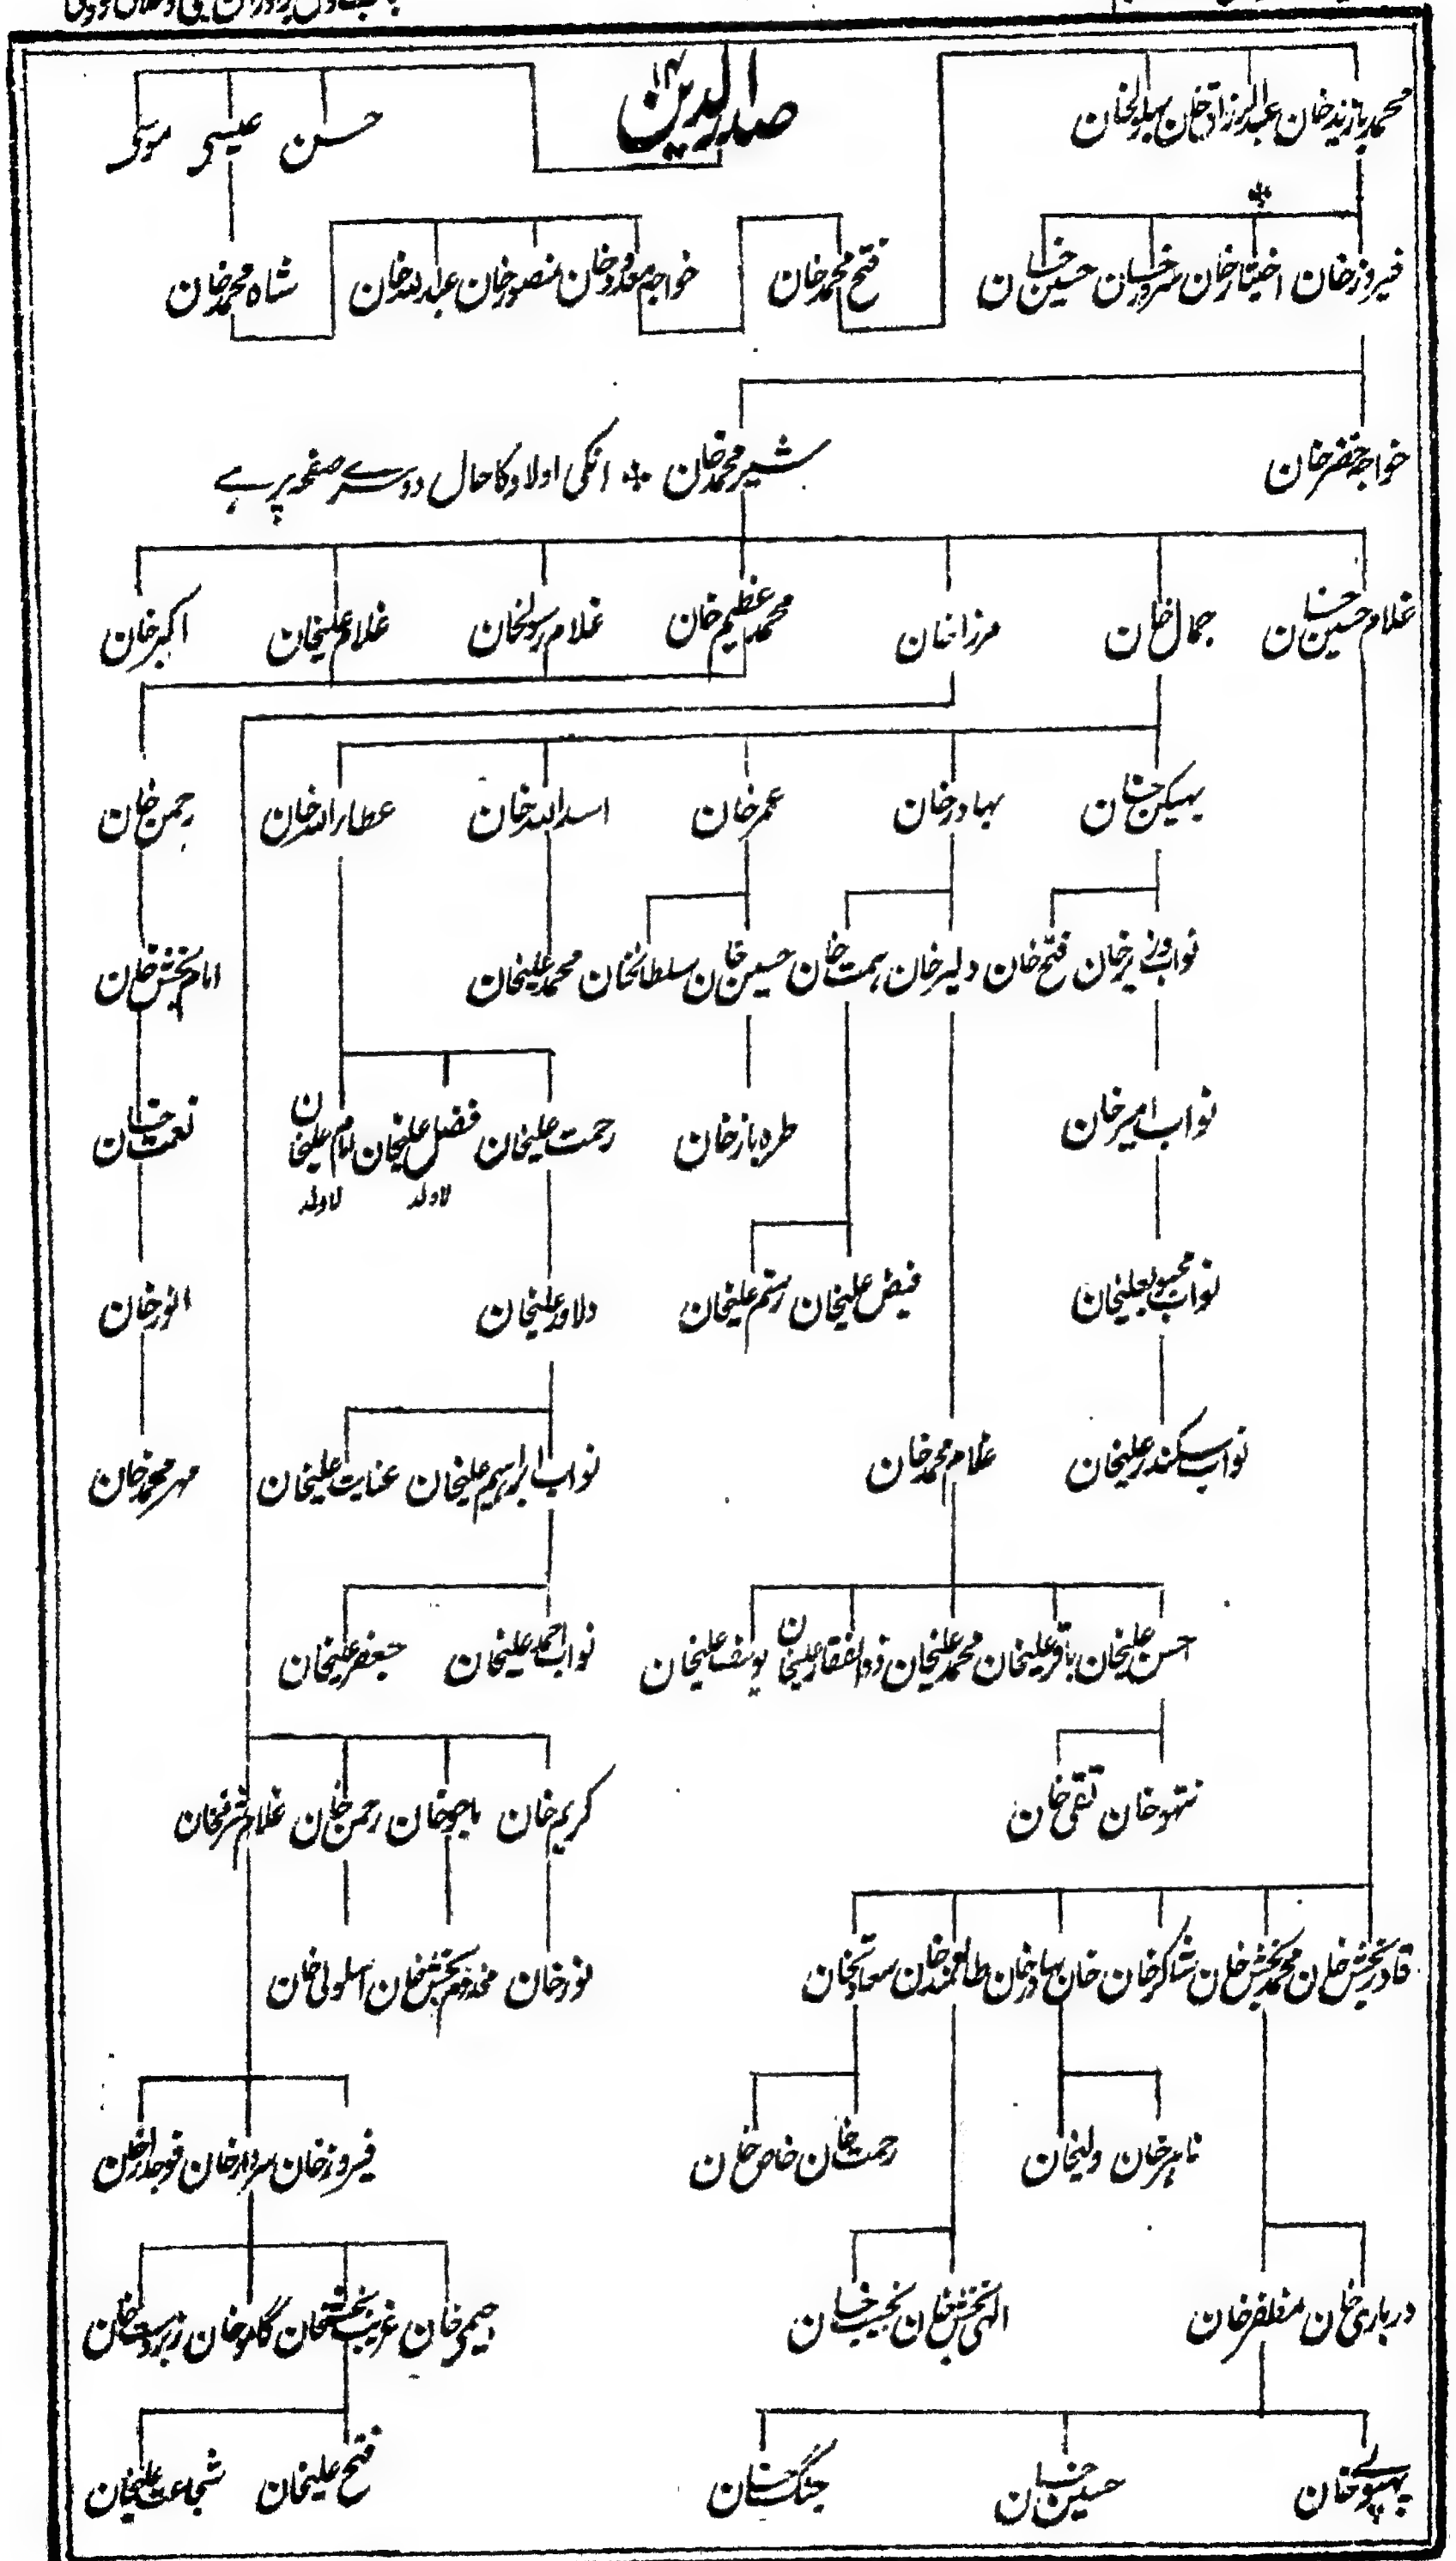 صدرالدین
محمد بازید خان عبدالرزاق خان بہلولخان
حسن عیسی موسی
فیروز خان اختیار خان سرور خان حسین خان
فتح محمد خان
خواجہ مودود خان منصور خان عبداللہ خان
شاہ محمد خان
خواجہ خضر خان
شیر محمد خان ⁜ انکی اولاد کا حال دوسرے صفحہ پر ہے
غلام حسین خان جمال خان مرزا خان محمد عظیم خان غلام رسولخان غلام علیخان اکبر خان
بہیکن خان بہادر خان عمر خان اسد اللہ خان عطاء اللہ خان رحمن خان
نواب وزیر خان فتح خان دلیر خان ہمت خان حسین خان سلطانخان محمد علیخان امام بخش خان
نواب امیر خان طرہ باز خان رحمت علیخان فضل علیخان امام علیخان نعمت خان
لاولد لاولد
نواب محبوبعلیخان فیض علیخان رستم علیخان دلاور علیخان انور خان
نواب سکندر علیخان غلام محمد خان نواب ابراہیم علیخان عنایت علیخان مہر محمد خان
احسن علیخان باقر علیخان محمد علیخان ذوالفقار علیخان یوسف علیخان نواب احمد علیخان جعفر علیخان
نتہو خان تقی خان کریم خان باجو خان رحمن خان غلام شرفخان
قادر بخش خان محمد بخش خان شاکر خان خان بہادر خان طالعمند خان سعادتخان نور خان مخدوم بخش خان
ناہر خان ولیخان رحمت خان خاص خان فیروز خان سردار خان فوجدار خان
درباری خان مظفر خان الہی بخش خان نجیب خان غریب بخش خان گامو خان زبردست خان
حسین خان جنگ خان فتح علیخان شجاعت علیخان